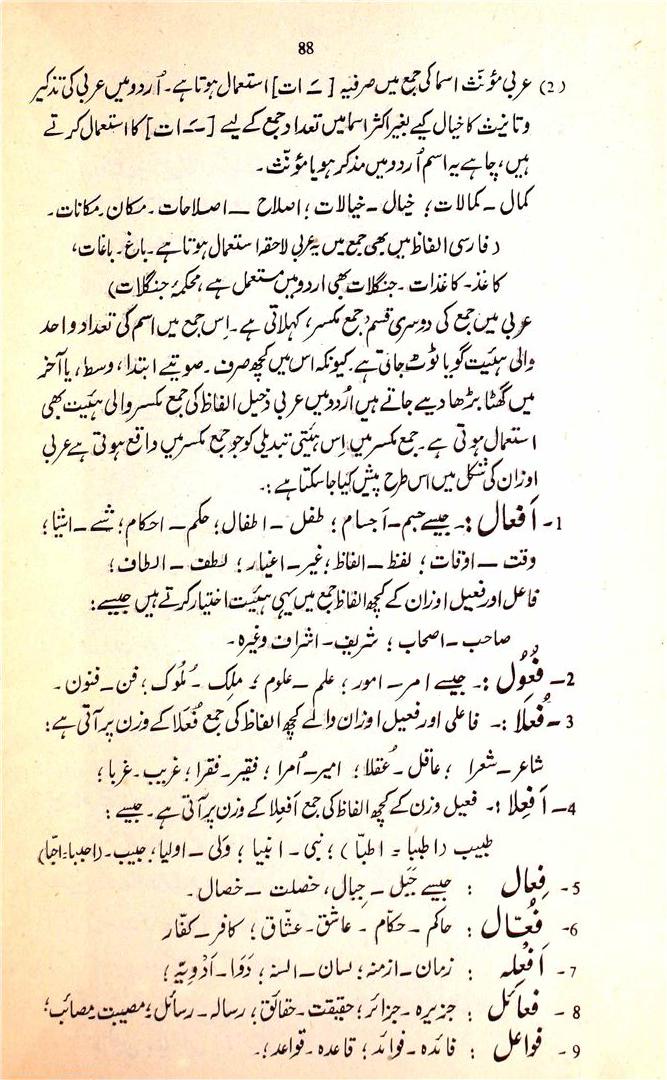 88
(2) عربی مؤنّث اسما کی جمع میں صرفیہ [ ـَ ات] استعمال ہوتا ہے۔ اُردو میں عربی کی تذکیر
و تانیث کا خیال کیے بغیر اکثر اسما میں تعداد جمع کے لیے [ ـَ ات] کا استعمال کرتے
ہیں، چاہے یہ اسم اُردو میں مذکر ہو یا مؤنّث۔
کمال ـ کمالات؛ خیال ـ خیالات؛ اصلاح ـ اصلاحات۔ مکان۔ مکانات۔
(فارسی الفاظ میں بھی جمع میں یہ عربی لاحقہ استعمال ہوتا ہے۔ باغ۔ باغات،
کاغذ۔ کاغذات۔ جنگلات بھی اردو میں مستعمل ہے، محکمۂ جنگلات)
عربی میں جمع کی دوسری قسم 'جمع مکسر' کہلاتی ہے۔ اِس جمع میں اسم کی تعداد واحد
والی ہئیت گویا ٹوٹ جاتی ہے۔ کیونکہ اس میں کچھ صرف۔ صوتیے ابتدا، وسط، یا آخر
میں گھٹا بڑھا دیے جاتے ہیں اُردو میں عربی ذخیل الفاظ کی جمع مکسر والی ہئیت بھی
استعمال ہوتی ہے۔ جمع مکسر میں اِس ہئیتی تبدیلی کو جو جمع مکسر میں واقع ہوتی ہے عربی
اوزان کی شکل میں اس طرح پیش کیا جا سکتا ہے :۔
1۔ اَفعال :۔ جیسے جسم ـ اَجسام؛ طفل ـ اطفال؛ حکم ـ احکام؛ شے ـ اشیا؛
وقت ـ اوقات؛ لفظ ـ الفاظ؛ غیر ـ اغیار؛ لطف ـ الطاف؛
فاعل اور فعیل اوزان کے کچھ الفاظ جمع میں یہی ہئیت اختیار کرتے ہیں جیسے :
صاحب ـ اصحاب؛ شریف ـ اشراف وغیرہ۔
2۔ فُعُول :۔ جیسے امر ـ امور؛ علم ـ علوم؛ ملِک ـ مُلوُک؛ فن ـ فنون۔
3۔ فُعلَا :۔ فاعلی اور فعیل اوزان والے کچھ الفاظ کی جمع فُعَلا کے وزن پر آتی ہے :
شاعر ـ شعرا؛ عاقل ـ عُقلا؛ امیر ـ اُمرا؛ فقیر ـ فقرا؛ غریب ـ غربا؛
4۔ اَفعِلا :۔ فعیل وزن کے کچھ الفاظ کی جمع اَفعِلا کے وزن پر آتی ہے۔ جیسے :
طبیب (اطببا ـ اطبّا)؛ نبی ـ انبیا؛ ولی ـ اولیا؛ حبیب ـ (احببا ـ احبّا)
5۔ فِعال : جیسے جَبَل ـ جِبال، خصلت ـ خصال۔
6۔ فُعّال : حاکم ـ حکّام ـ عاشق ـ عشّاق؛ کافر ـ کفّار
7۔ اَفعِلہ : زمان ـ ازمنہ؛ لسان ـ السنہ؛ دَوا ـ اَدْوِیّہ؛
8۔ فعائل : جزیرہ ـ جزائر؛ حقیقت ـ حقائق؛ رسالہ ـ رسائل؛ مصیبت مصائب؛
9۔ فواعل : فائدہ ـ فوائد؛ قاعدہ ـ قواعد؛۔